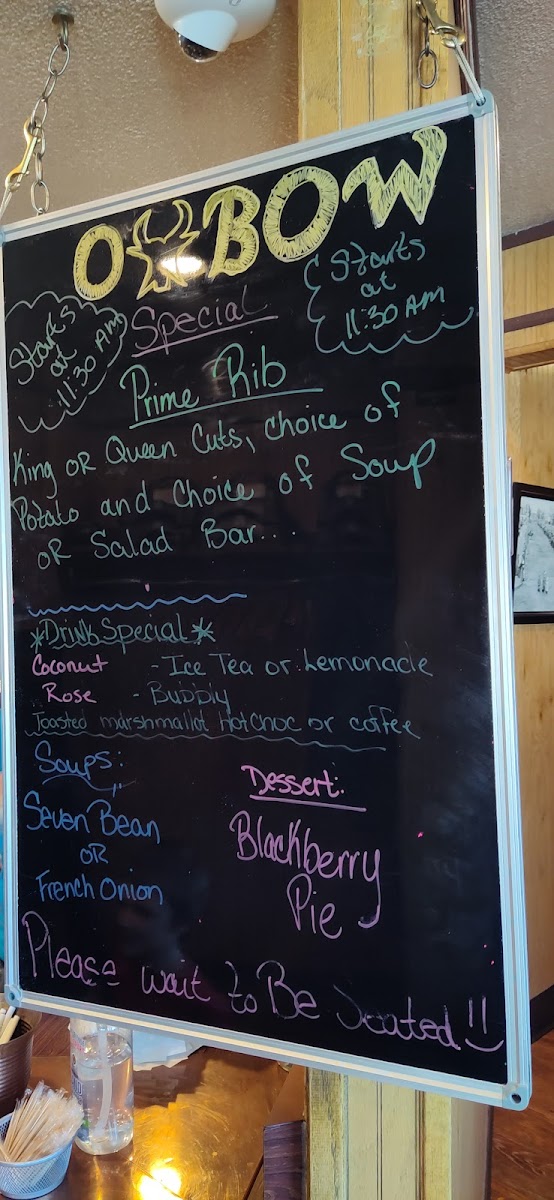 OXBOW
Starts
at
11:30 AM
Special
Starts
at
11:30 AM
Prime Rib
King OR Queen Cuts, choice of
Potato and Choice of Soup
OR Salad Bar...
*Drink Special*
Coconut - Ice Tea or Lemonade
Rose - Bubbly
Toasted marshmallot Hot Choc or coffee
Soups:
Seven Bean
OR
French Onion
Dessert:
Blackberry
Pie
Please wait to Be Seated!!